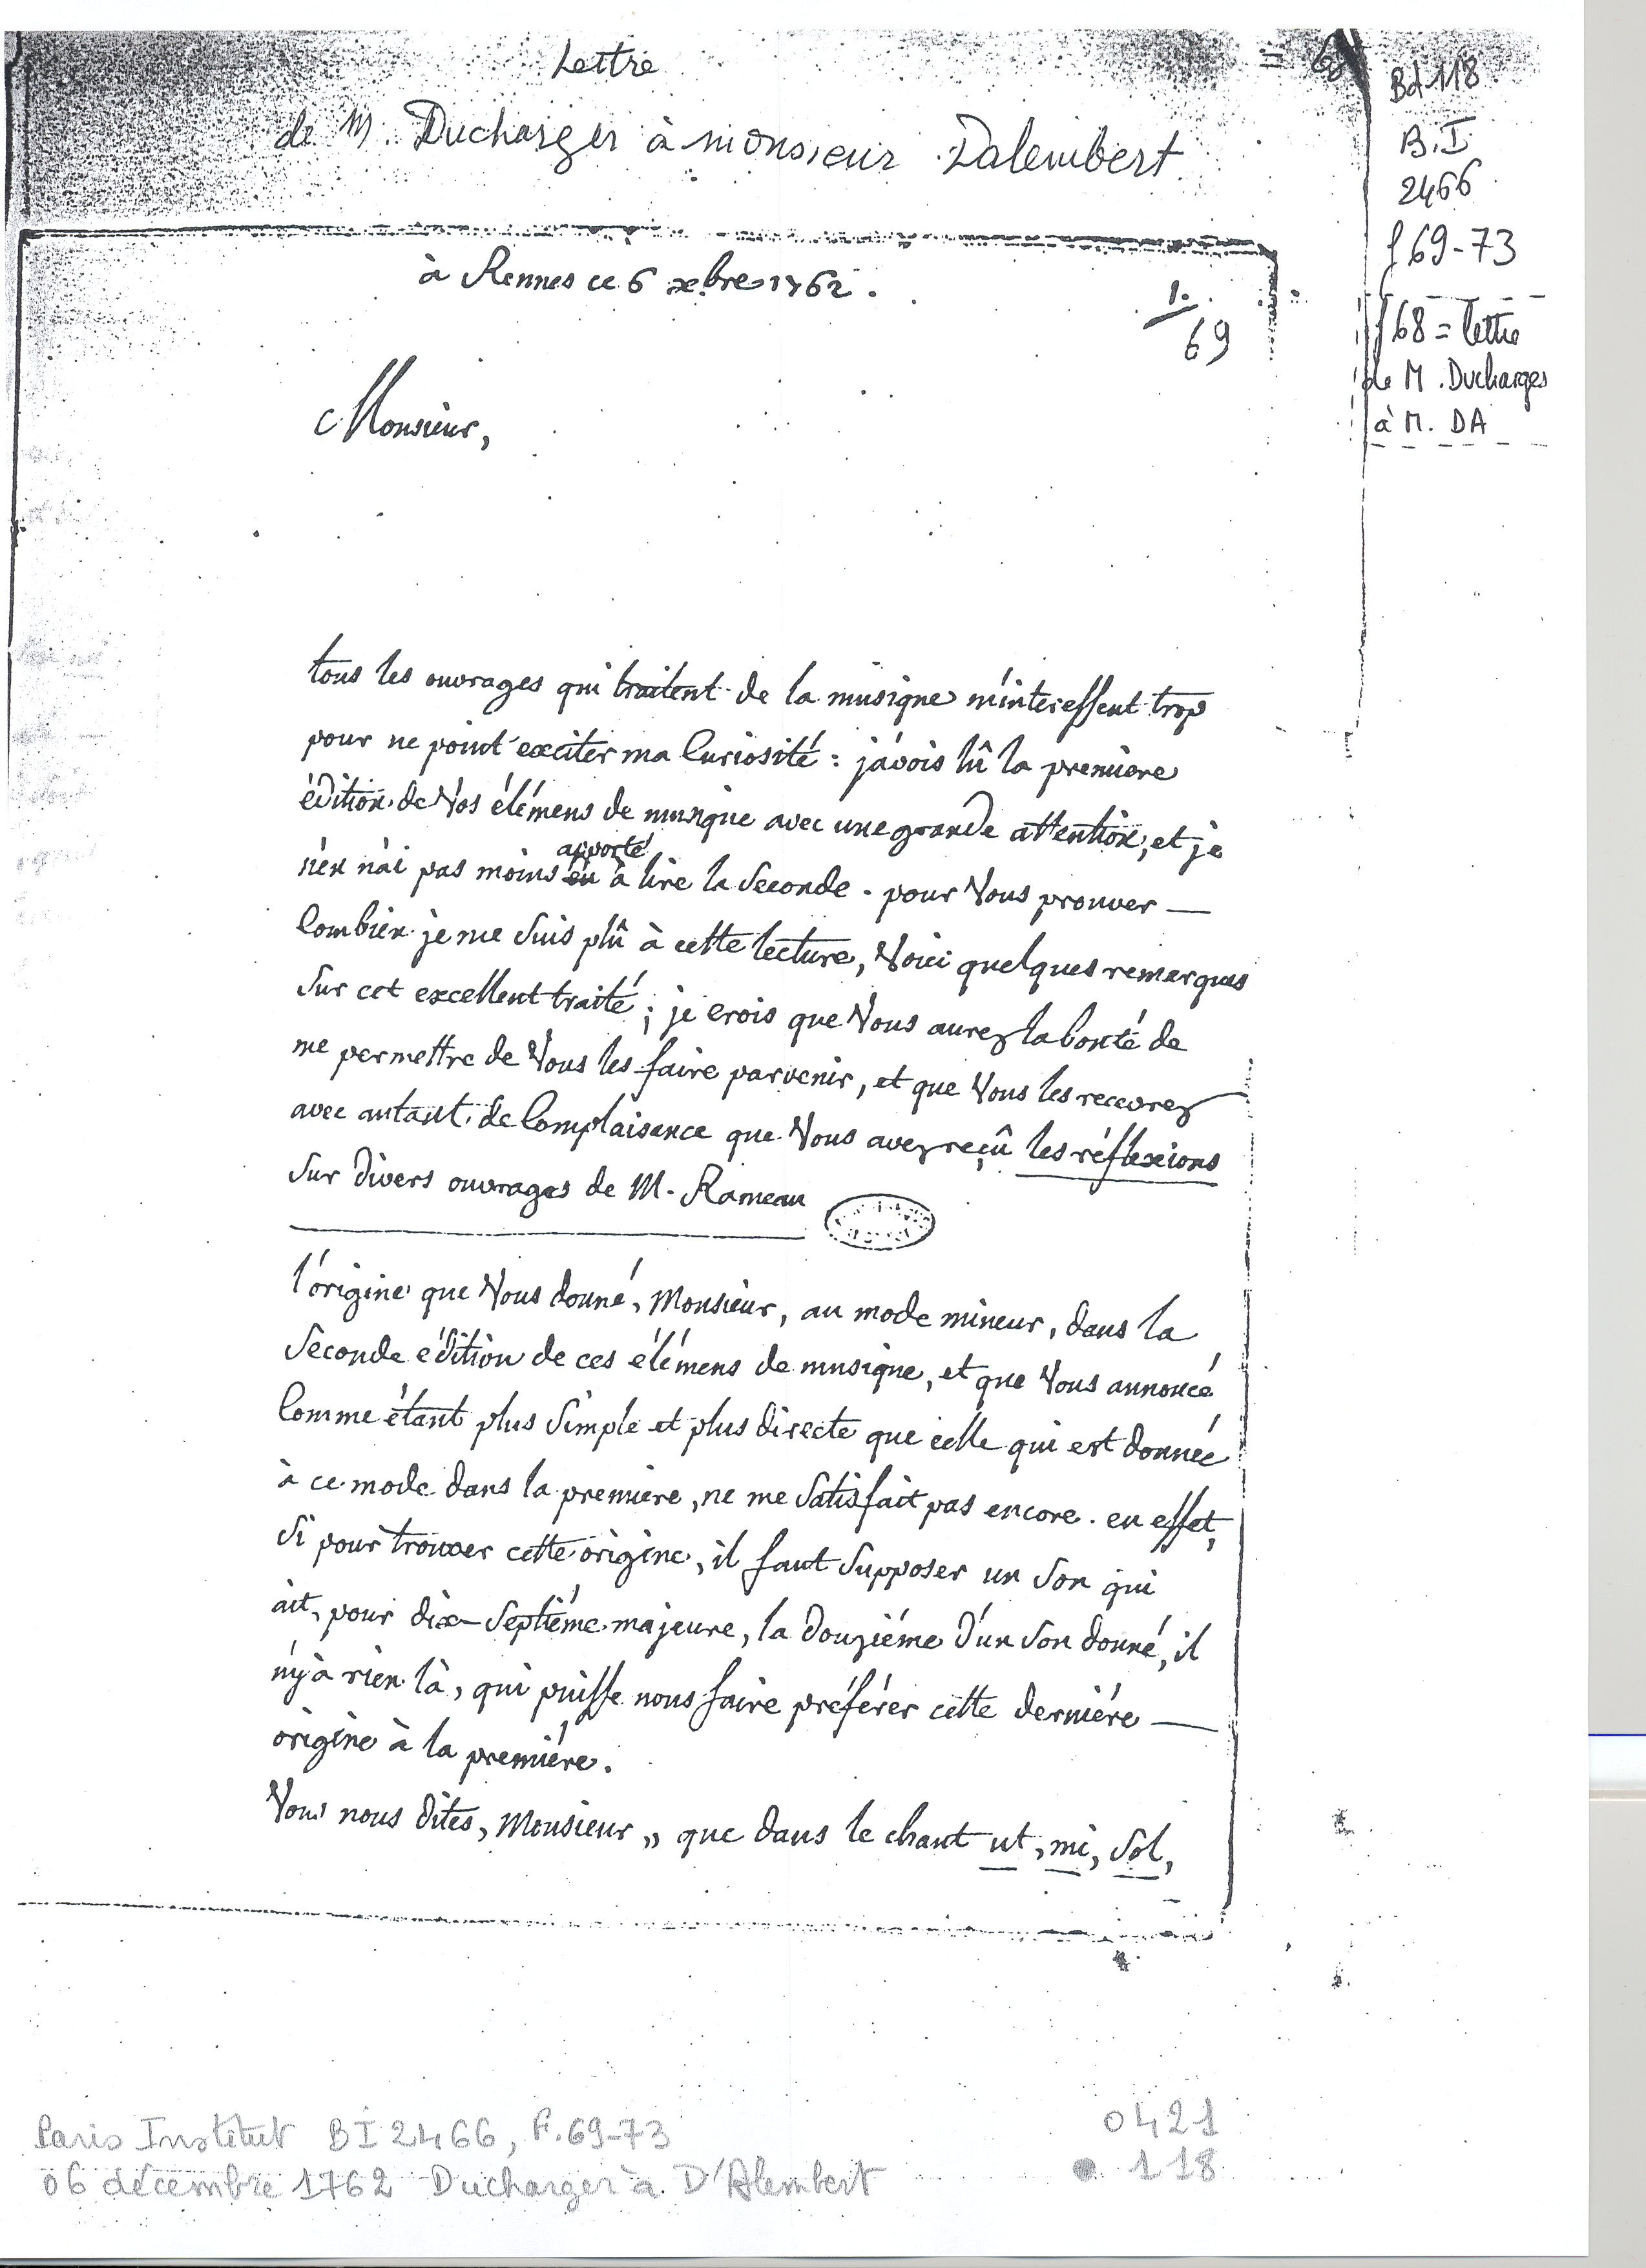 Lettre
de M. Ducharger à monsieur Dalembert
68
Bd 118
B.I
2466
f 69-73
f 68 = lettre
de M. Ducharges
à M. DA
à Rennes ce 6 xbre 1762.
1.
69
Monsieur,
tous les ouvrages qui traitent de la musique m'interessent trop
pour ne point exciter ma Curiosité : j'avois lû la premiere
édition de Vos élémens de musique avec une grande attention, et je
n'en n'ai pas moins eu apporté à lire la seconde. pour Vous prouver
Combien je me suis plû à cette lecture, Voici quelques remarques
sur cet excellent traité ; je crois que Vous aurez la bonté de
me permettre de Vous les faire parvenir, et que Vous les recevrez
avec autant de Complaisance que Vous avez reçû les réflexions
sur divers ouvrages de M. Rameau
l'origine que Vous donné, Monsieur, au mode mineur, dans la
seconde édition de ces élémens de musique, et que Vous annoncé
Comme étant plus simple et plus directe que celle qui est donnée
à ce mode dans la premiere, ne me satisfait pas encore. en effet,
si pour trouver cette origine, il faut supposer un son qui
ait, pour dix-septiéme majeure, la douziéme d'un son donné, il
n'y à rien là, qui puisse nous faire préférer cette derniére
origine à la premiére.
Vous nous dites, Monsieur „ que dans le chant ut, mi, sol,
Paris Institut BI 2466, F. 69-73
06 décembre 1762 Ducharger à D'Alembert
0421
118